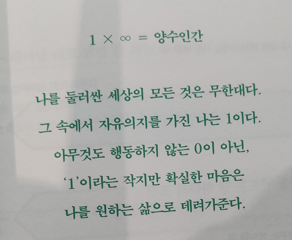 1 × ∞ = 양수인간
나를 둘러싼 세상의 모든 것은 무한대다.
그 속에서 자유의지를 가진 나는 1이다.
아무것도 행동하지 않는 0이 아닌,
‘1’이라는 작지만 확실한 마음은
나를 원하는 삶으로 데려가준다.